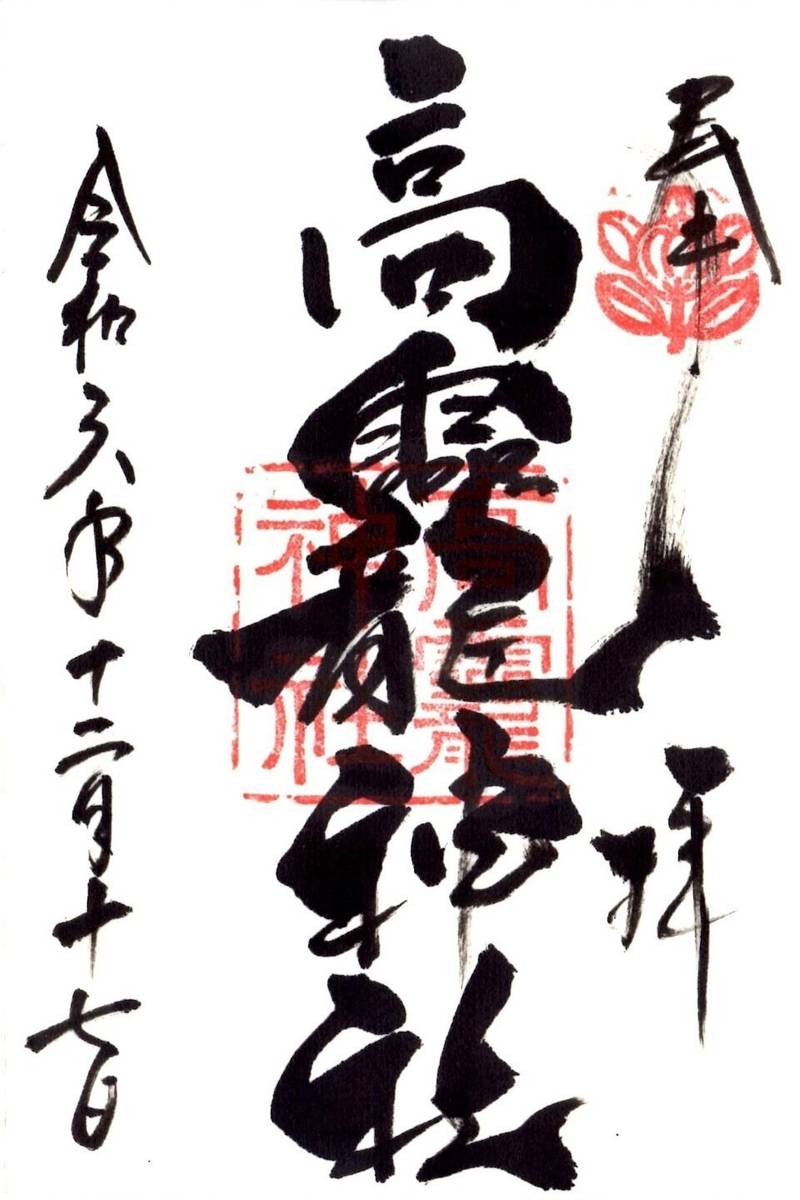 奉拝
高龗神社
令和六年十二月十七日
高龗
神社